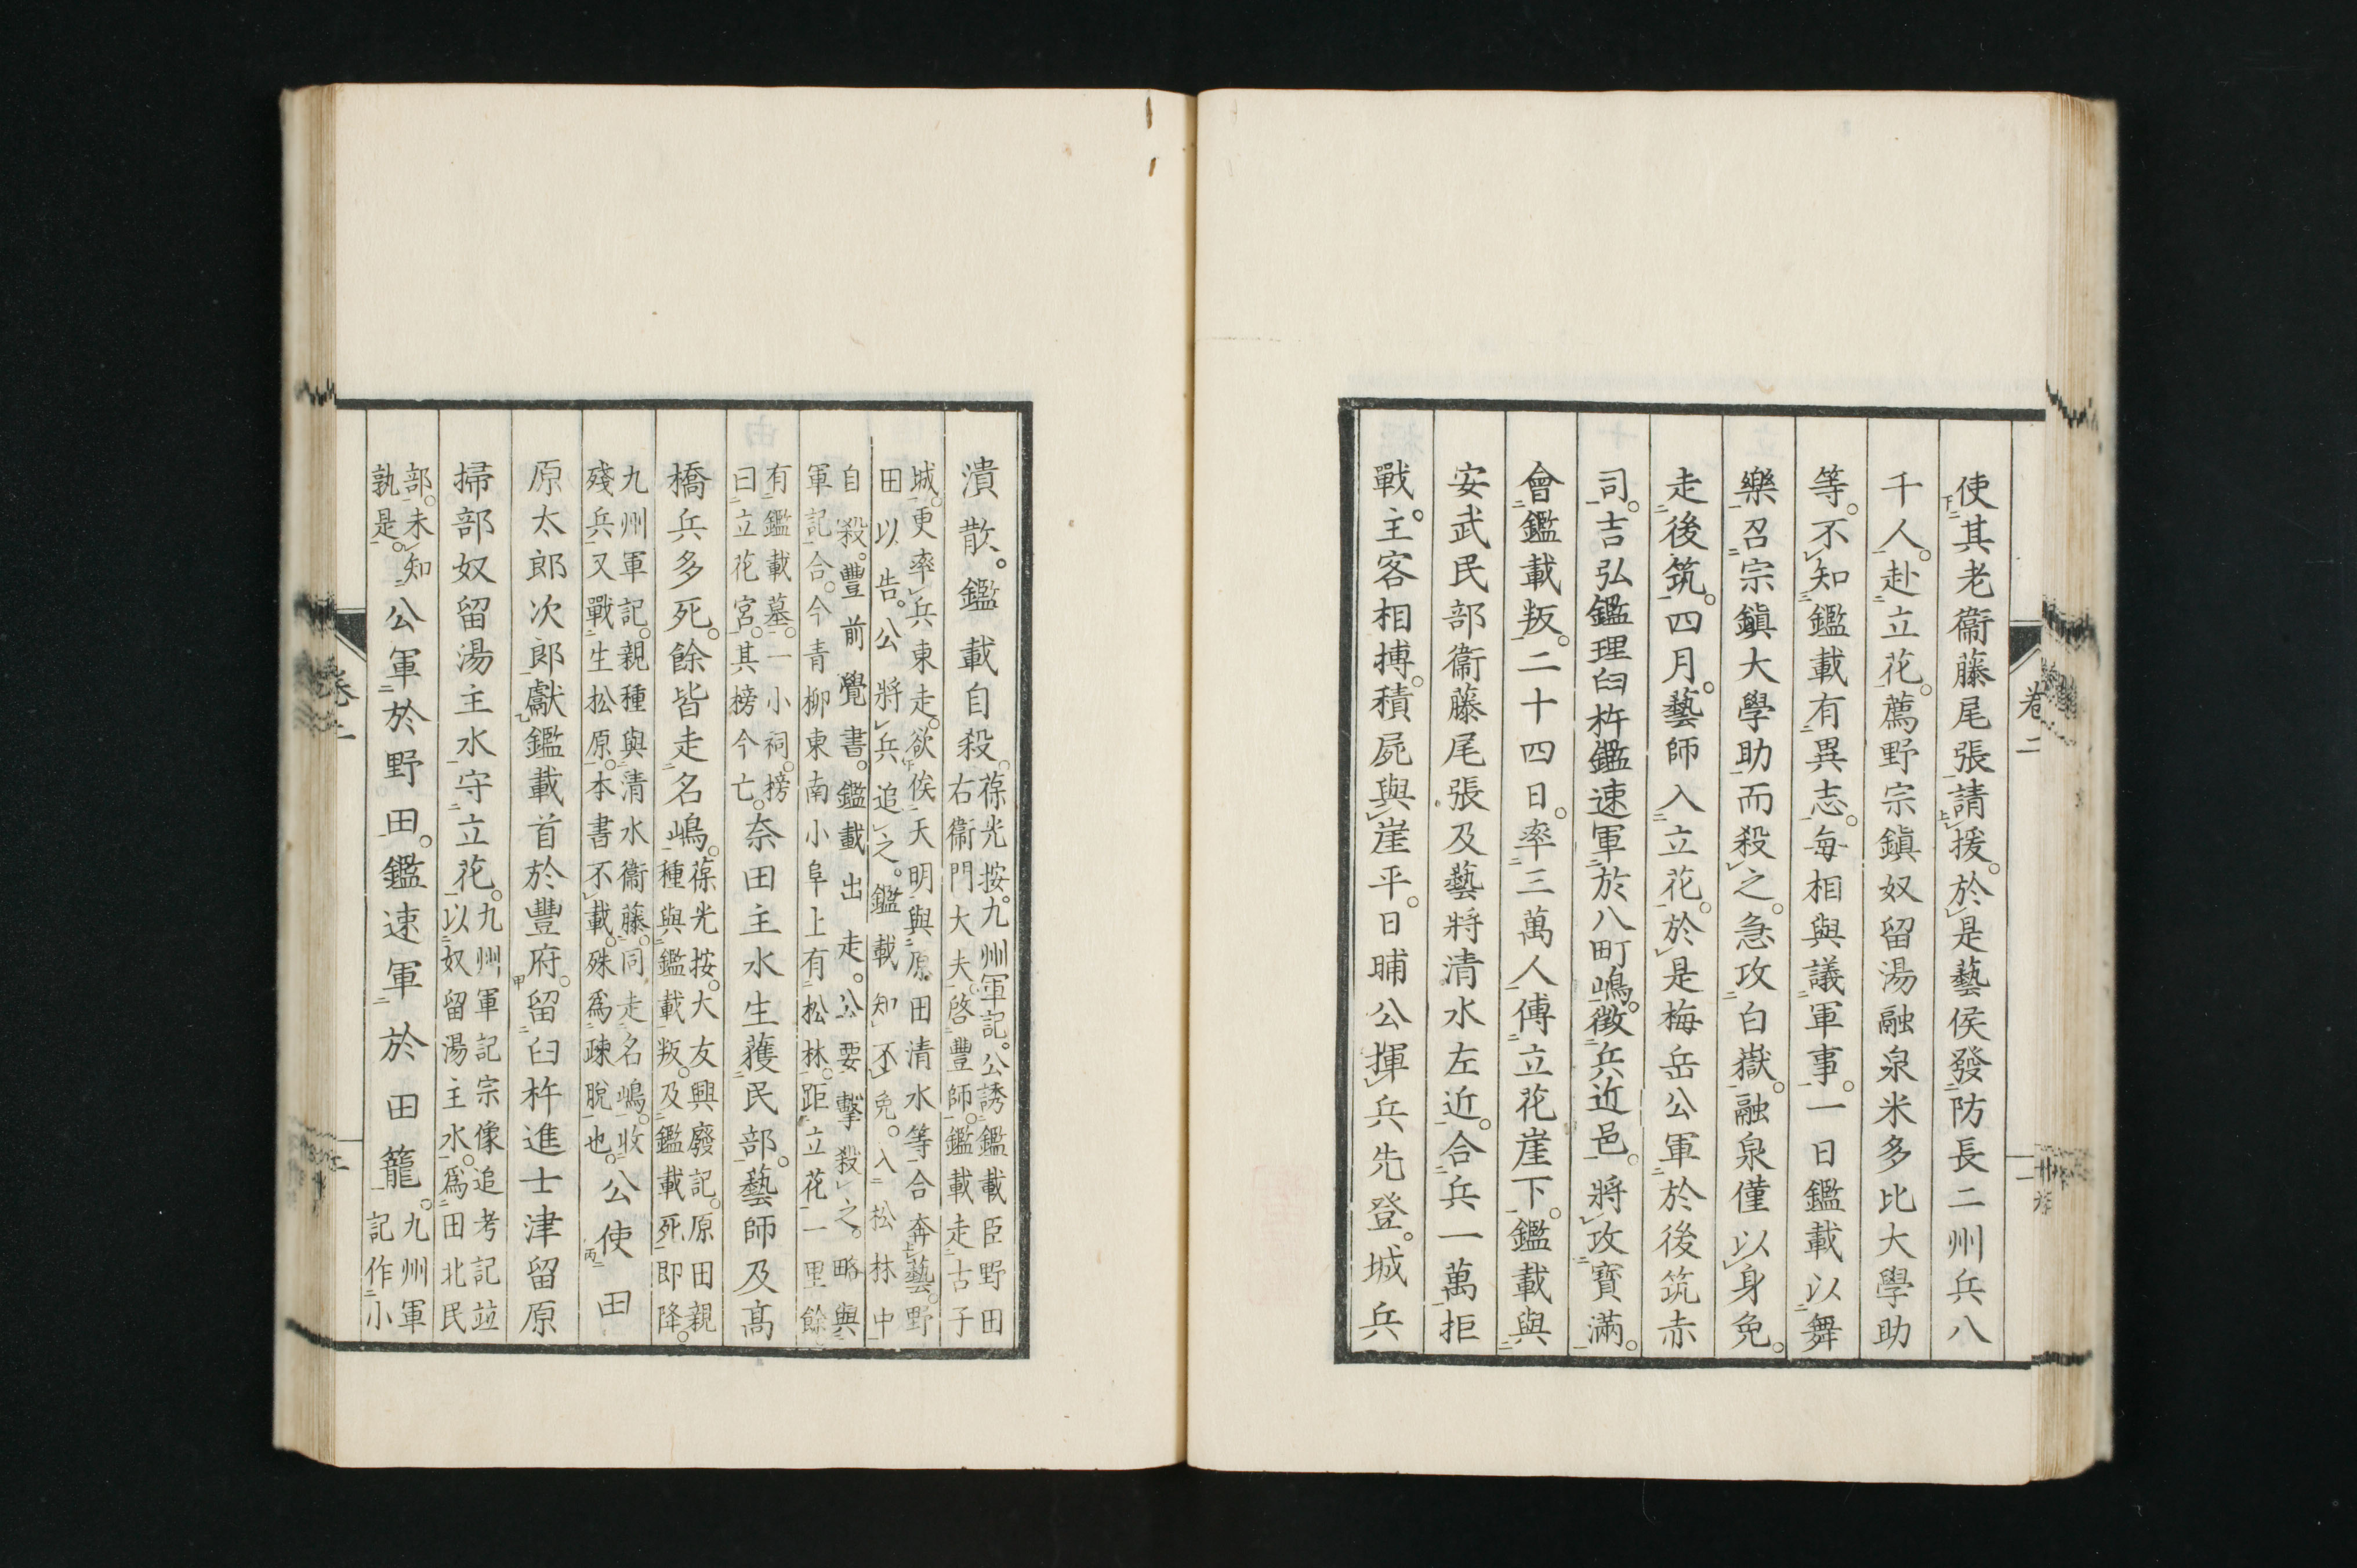 卷二
使其老衞藤尾張請援。於是藝侯發防長二州兵八
千人。赴立花。薦野宗鎭奴留湯融泉米多比大學助
等。不知鑑載有異志。每相與議軍事。一日鑑載以舞
樂召宗鎭大學助而殺之。急攻白嶽。融泉僅以身免。
走後筑。四月。藝師入立花。於是梅岳公軍於後筑赤
司。吉弘鑑理臼杵鑑速軍於八町嶋。徵兵近邑。將攻寳滿。
會鑑載叛。二十四日。率三萬人傅立花崖下。鑑載與
安武民部衞藤尾張及藝將清水左近。合兵一萬拒
戰。主客相搏。積屍與崖平。日晡公揮兵先登。城兵
潰散。鑑載自殺。葆光按。九州軍記。公誘鑑載臣野田
右衞門大夫。啓豐師。鑑載走古子
城。更率兵東走。欲俟天明與原田清水等合奔藝。野
田以告。公將兵追之。鑑載知不免。入松林中
自殺。豐前覺書。鑑載出走。公要擊殺之。略與
軍記合。今青柳東南小阜上有松林。距立花一里餘
有鑑載墓。一小祠。榜
曰立花宮。其榜今亡。奈田主水生獲民部。藝師及高
橋兵多死。餘皆走名嶋。葆光按。大友興廢記。原田親
種與鑑載叛。及鑑載死即降。
九州軍記。親種與清水衞藤。同走名嶋。收
殘兵又戰生松原。本書不載。殊爲疎脫也。公使田
原太郎次郎獻鑑載首於豐府。留臼杵進士津留原
掃部奴留湯主水守立花。九州軍記宗像追考記竝
以奴留湯主水。爲田北民
部。未知
孰是。公軍於野田。鑑速軍於田籠。九州軍
記作小
卷二